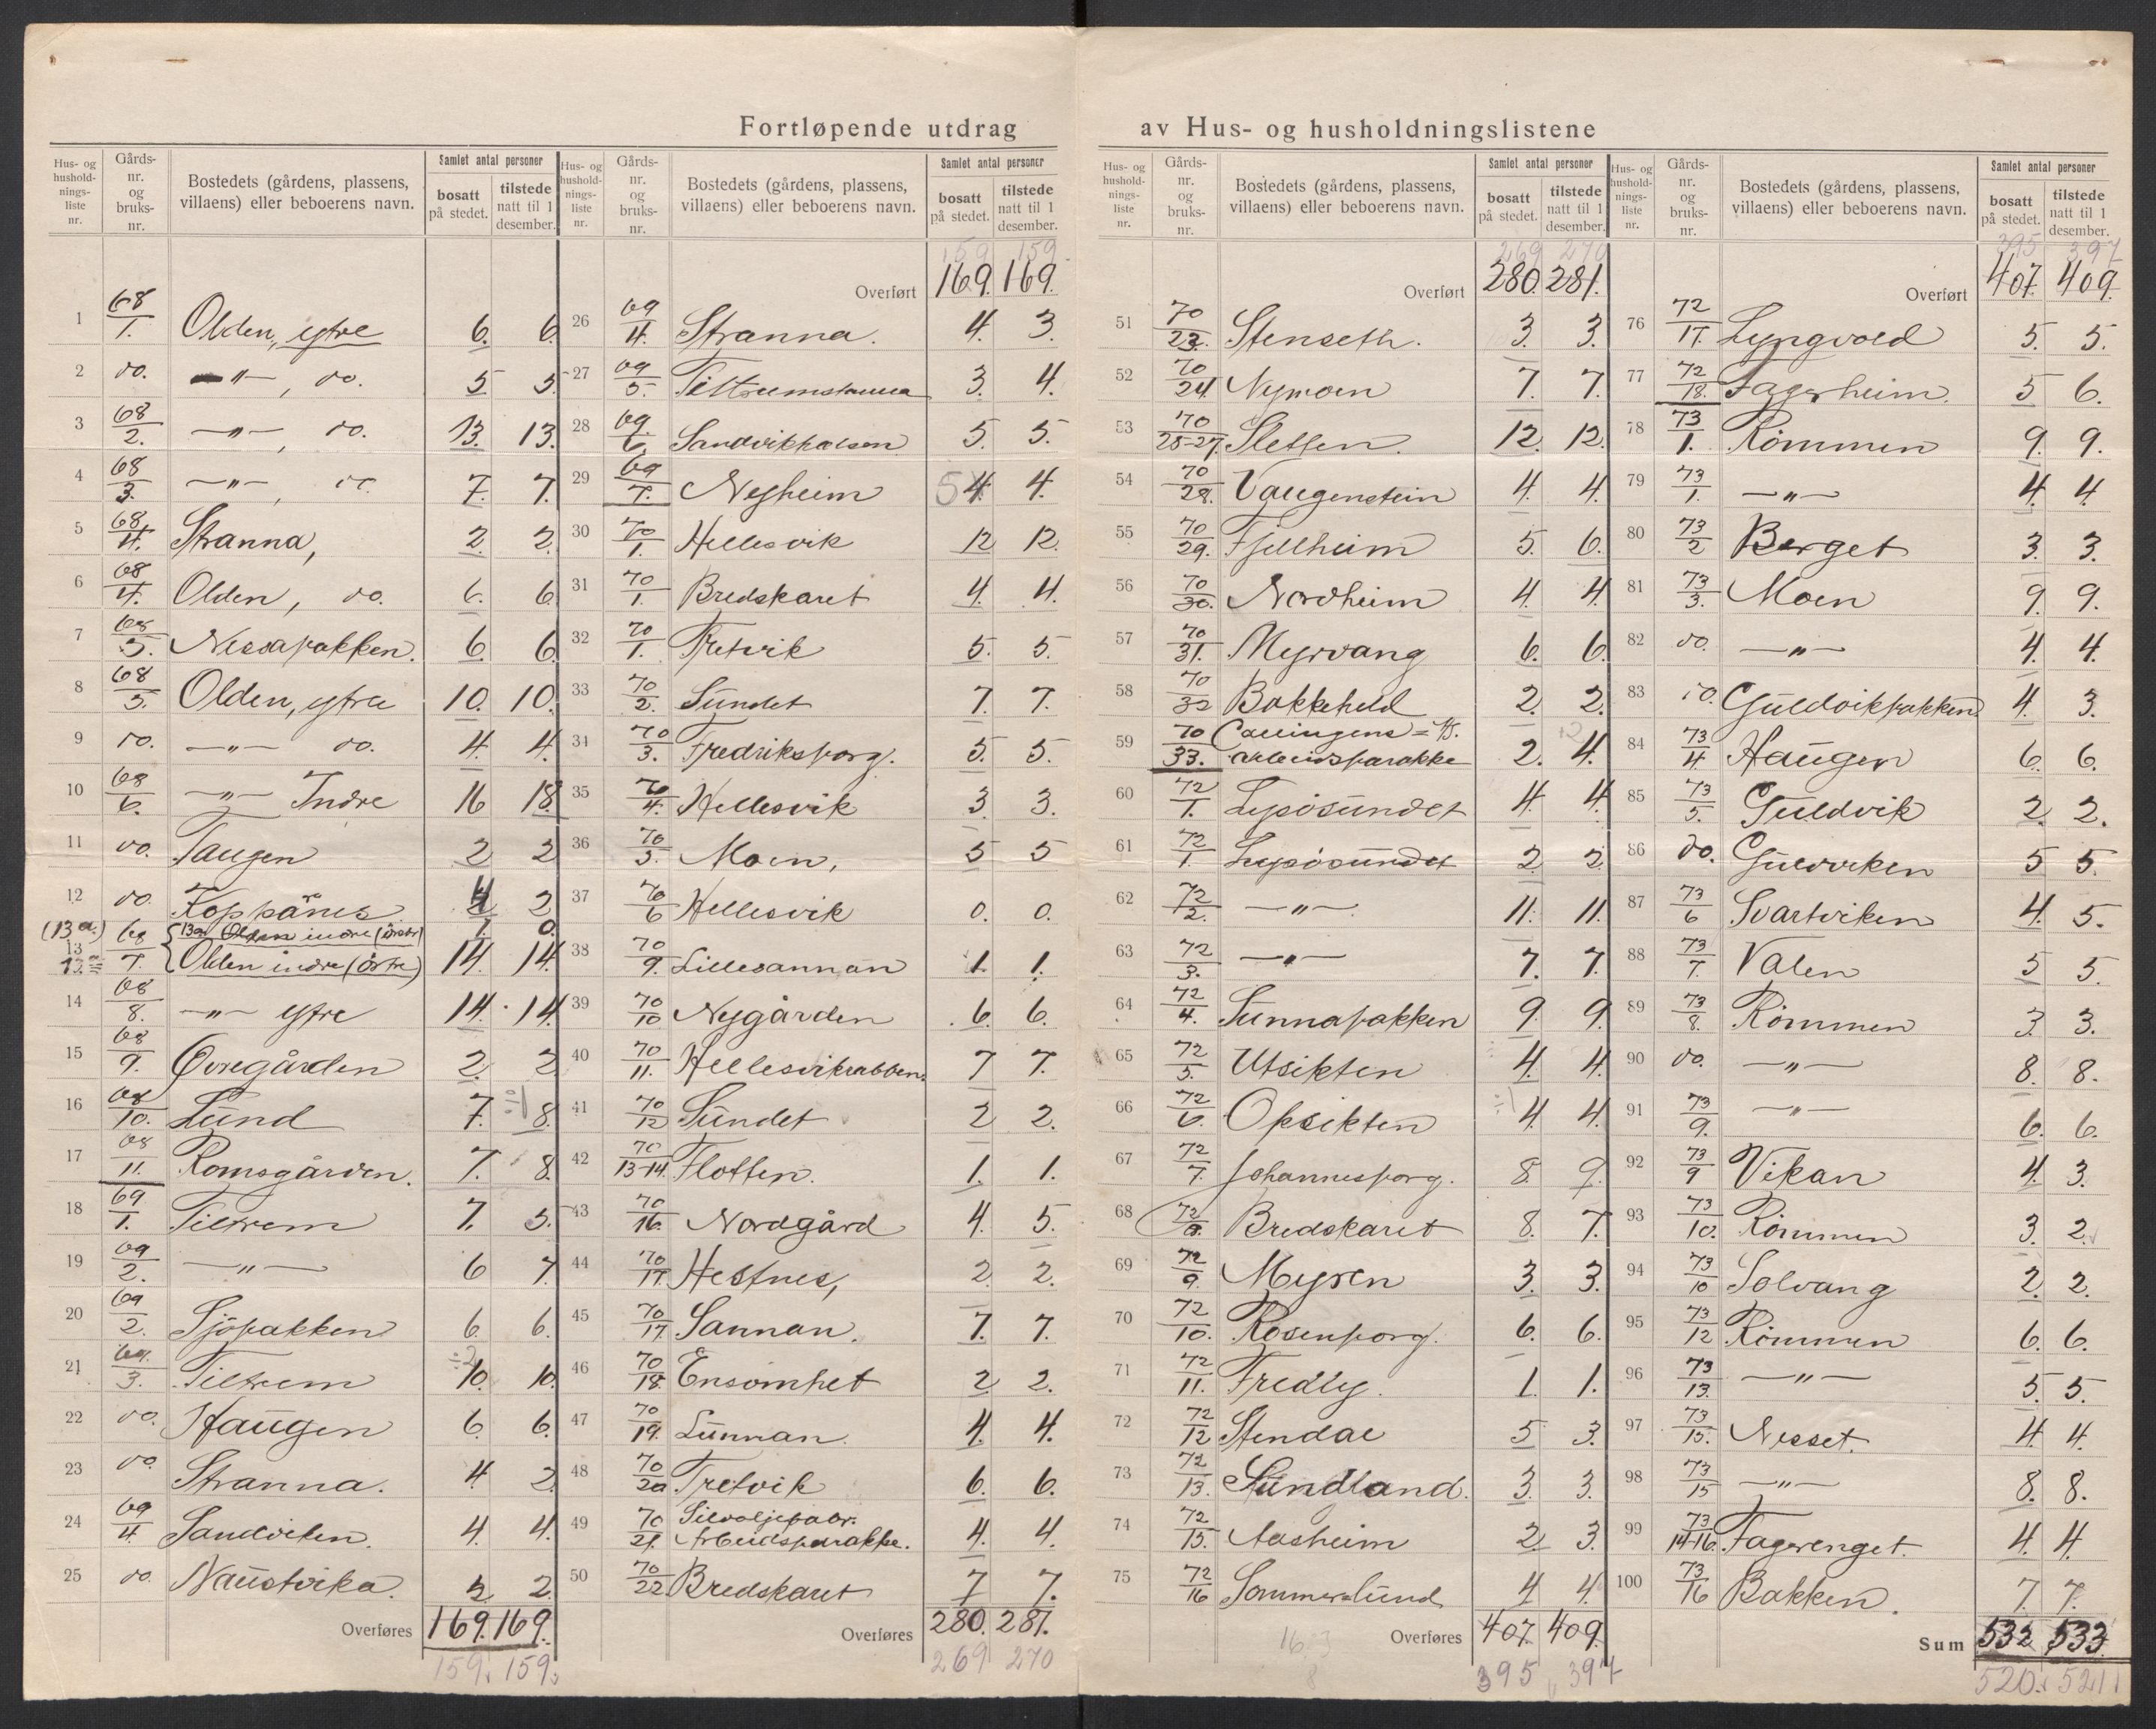 Fortløpende utdrag av Hus- og husholdningslistene
Hus- og hushold-nings-liste nr. | Gårds-nr. og bruks-nr. | Bostedets (gårdens, plassens, villaens) eller beboerens navn. | Samlet antal personer | bosatt på stedet. | tilstede natt til 1 desember.
1 68/1. Olden, ytre 6. 6.
2 do. —"—, do. 5 5.
3 68/2. —"—, do. 13. 13.
4 68/3. —"—, do. 7. 7.
5 68/4. Stranna, 2. 2.
6 68/4. Olden, do. 6. 6.
7 68/5. Nessabakken. 6. 6.
8 68/5. Olden, ytre 10. 10.
9 do. —"— do. 4. 4.
10 68/6. —"— Indre 16 18.
11 do. Tangen 2 2
12 do. Koppånes 2
(13a.) 13a Olden indre 1. 0.
13 68/7. Olden indre (østre) 14. 14.
14 68/8. —"— ytre 14. 14.
15 68/9. Øvregården 2. 2
16 68/10. Lund 7. ÷1 8.
17 68/11. Romsgården. 7. 8.
18 69/1. Tiltrem 7. 5.
19 69/2. —"— 6 7.
20 69/2. Sjøbakken 6. 6.
21 69/3. Tiltrem ÷2 10. 10.
22 do. Haugen 6. 6.
23 do. Stranna. 4. 2.
24 69/4. Sandviken. 4. 4.
25 do. Naustvika. 2 2.
Overføres 169. 169.
159. 159.
159 159.
Overført 169. 169.
26 69/4. Stranna. 4. 3.
27 69/5. Tiltremstranna 3. 4.
28 69/6. Sandvikholsen 5. 5.
29 69/7. Nyheim 5 4. 4.
30 70/1. Hellesvik 12 12.
31 70/1. Bredskaret 4. 4.
32 70/1. Fretvik 5. 5.
33 70/2. Sundet 7. 7.
34 70/3. Fredriksborg. 5. 5.
35 70/4. Hellesvik 3. 3.
36 70/5. Moen, 5 5
37 70/6 Hellesvik 0. 0.
38 70/9. Lillesannan 1. 1.
39 70/10 Nygården 6. 6.
40 70/11. Hellesvikrabben. 7 7.
41 70/12 Sundet 2 2.
42 70/13-14. Flotten. 1. 1.
43 70/16. Nordgård 4. 5.
44 70/17. Hestnes, 2. 2.
45 70/17. Sannan. 7. 7.
46 70/18. Ensomhet 2. 2.
47 70/19. Lunnan. 4. 4.
48 70/20 Fretvik 6. 6.
49 70/21. Sildoljefabr. Arbeidsbarakke. 4. 4.
50 70/22 Bredskaret 7 7.
Overføres 280. 281.
269 270
269 270
Overført 280. 281.
51 70/23. Stenseth. 3. 3.
52 70/24. Nymoen 7. 7.
53 70/25-27. Sletten. 12. 12.
54 70/28. Vangenstein 4. 4.
55 70/29. Fjellheim 5. 6.
56 70/30. Nordheim 4. 4.
57 70/31. Myrvang 6. 6.
58 70/32 Bakkeheld 2. 2.
59 70/33. arbeidsbarakke 2. 4.
60 72/1. Lysøsundet 4. 4.
61 72/1. Lysøsundet 2. 2.
62 72/2. —"— 11. 11.
63 72/3. —"— 7. 7.
64 72/4. Sunnabakken 9. 9.
65 72/5. Utsikten 4. 4.
66 72/6. Opsikten ÷1 4. 4.
67 72/7. Johannesborg. 8. 9.
68 72/8. Bredskaret 8. 7.
69 72/9. Myren 3. 3.
70 72/10. Rosenborg. 6. 6.
71 72/11. Fredly. 1. 1.
72 72/12 Stendal 5 3.
73 72/13. Sundland. 3. 3.
74 72/15. Aasheim 2. 3.
75 72/16 Sommerlund 4 4.
Overføres 407. 409.
16.3
8
395 397
395 397
Overført 407. 409.
76 72/17. Lyngvold 5. 5.
77 72/18. Fagerheim. 5 6.
78 73/1. Rømmen 9. 9.
79 73/1. —"— 4. 4.
80 73/2 Berget 3. 3.
81 73/3. Moen 9. 9.
82 do. —"— 4. 4.
83 do. Guldvikbakken 4. 3.
84 73/4 Haugen 6. 6.
85 73/5. Guldvik 2. 2.
86 do. Guldviken 5 5.
87 73/6 Svartviken 4. 5.
88 73/7. Valen 5 5.
89 73/8. Rømmen 3. 3.
90 do. —"— 8. 8.
91 73/9. —"— 6. 6.
92 73/9 Vikan 4. 3.
93 73/10. Rømmen 3. 2.
94 73/10 Solvang 2. 2.
95 73/12 Rømmen 6. 6.
96 73/13. —"— 5. 5.
97 73/15. Nesset. 4. 4.
98 73/15 —"— 8. 8.
99 73/14-16. Fagerenget. 4. 4.
100 73/16 Bakken. 7. 7.
Sum 532 533.
520. 521